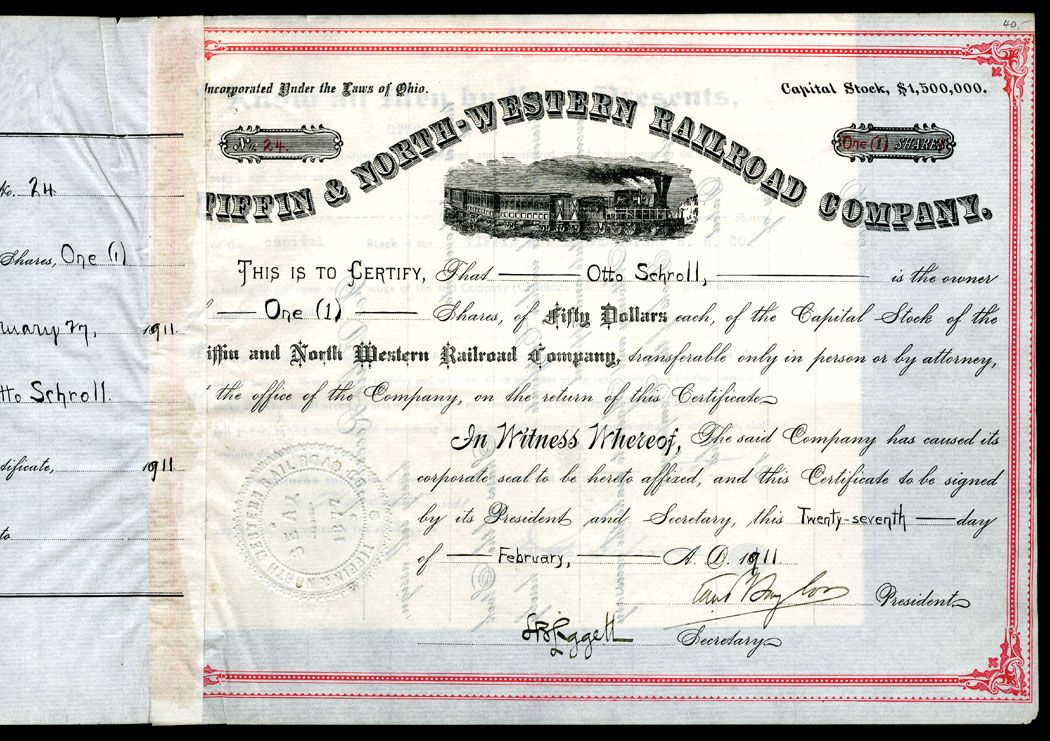 40.-
Incorporated Under the Laws of Ohio.
Capital Stock, $1,500,000.
No. 24.
One (1) SHARES
TIFFIN & NORTH-WESTERN RAILROAD COMPANY.
THIS IS TO CERTIFY, That Otto Schroll, is the owner
One (1) Shares, of Fifty Dollars each, of the Capital Stock of the
iffin and North Western Railroad Company, transferable only in person or by attorney,
the office of the Company, on the return of this Certificate
In Witness Whereof, The said Company has caused its
corporate seal to be hereto affixed, and this Certificate to be signed
by its President and Secretary, this Twenty-seventh day
of February, A. D. 1911
President
S B Liggett Secretary
No. 24
Shares, One (1)
ruary 27, 1911
tto Schroll.
tificate, 1911
to
SEAL